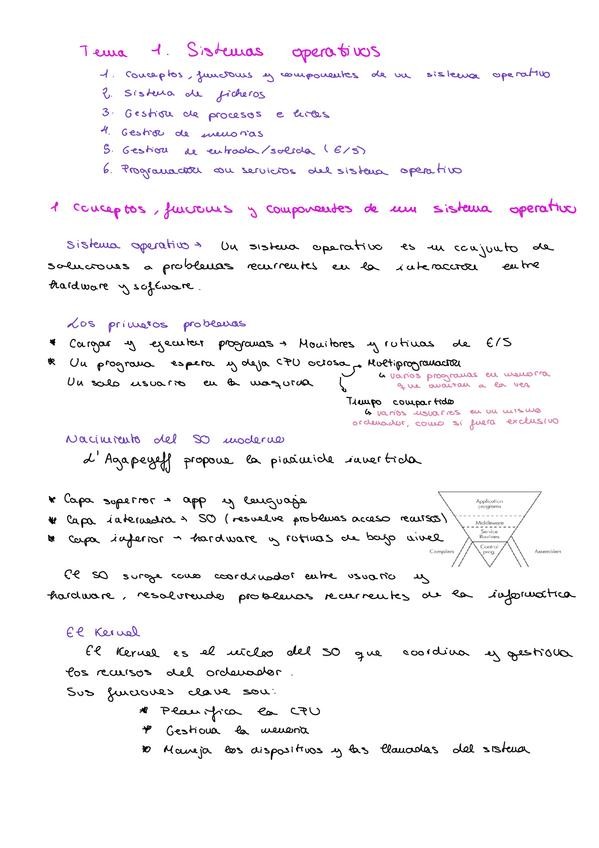 Tema 1. Sistemas operativos
1. Conceptos, funciones y componentes de un sistema operativo
2. Sistema de ficheros
3. Gestion de procesos e hilos
4. Gestion de memorias
5. Gestion de entrada/salida (E/S)
6. Programación con servicios del sistema operativo
1 Conceptos, funciones y componentes de un sistema operativo
Sistema operativo → Un sistema operativo es un conjunto de
soluciones a problemas recurrentes en la interacción entre
hardware y software.
Los primeros problemas
* Cargar y ejecutar programas → Monitores y rutinas de E/S
* Un programa espera y deja CPU ociosa → Multiprogramación
↳ varios programas en memoria
que avanzan a la vez
Un solo usuario en la maquina
Tiempo compartido
↳ varios usuarios en un mismo
ordenador, como si fuera exclusivo
Nacimiento del SO moderno
d'Agapeyeff propone la pirámide invertida
* Capa superior → app y lenguaje
* Capa intermedia → SO (resuelve problemas acceso recursos)
* Capa inferior → hardware y rutinas de bajo nivel
Application
programs
Middleware
Service
Routines
Control
prog.
Compilers
Assemblers
El SO surge como coordinador entre usuario y
hardware, resolviendo problemas recurrentes de la informática
El Kernel
El Kernel es el núcleo del SO que coordina y gestiona
los recursos del ordenador.
Sus funciones clave son:
* Planifica la CPU
* Gestiona la memoria
* Maneja los dispositivos y las llamadas del sistema